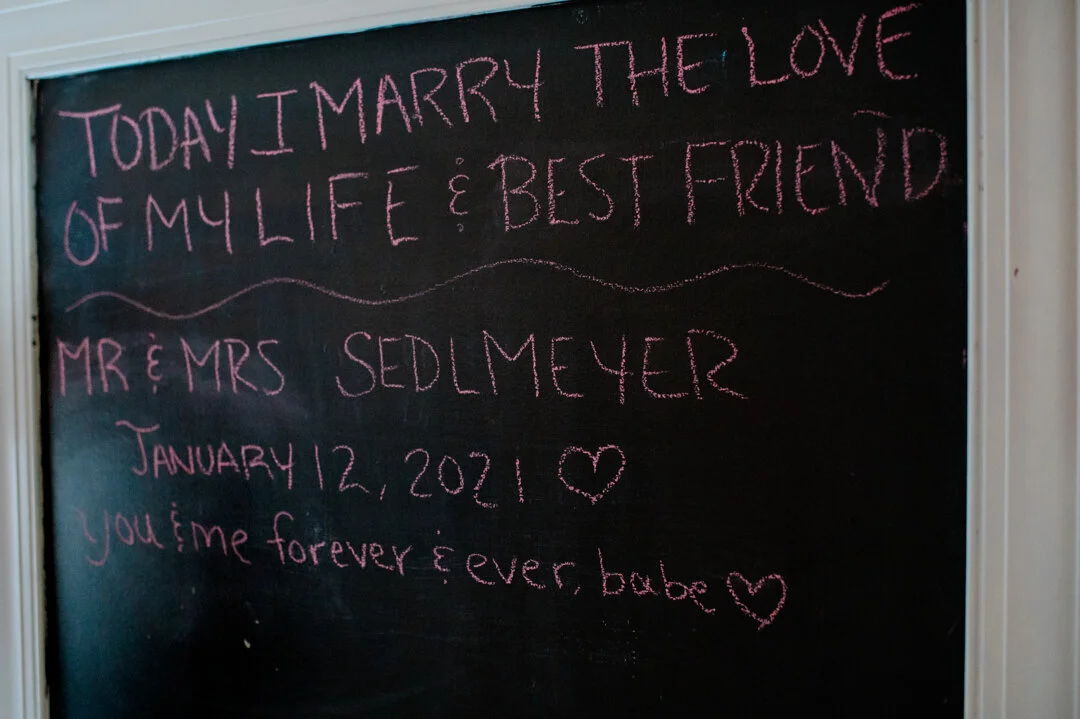 TODAY I MARRY THE LOVE
OF MY LIFE & BEST FRIEND
MR & MRS SEDLMEYER
JANUARY 12, 2021 ♡
you & me forever & ever, babe ♡